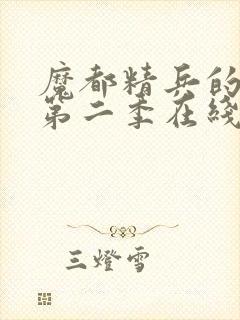 魔都精兵的
第二季在綫
三燈雪